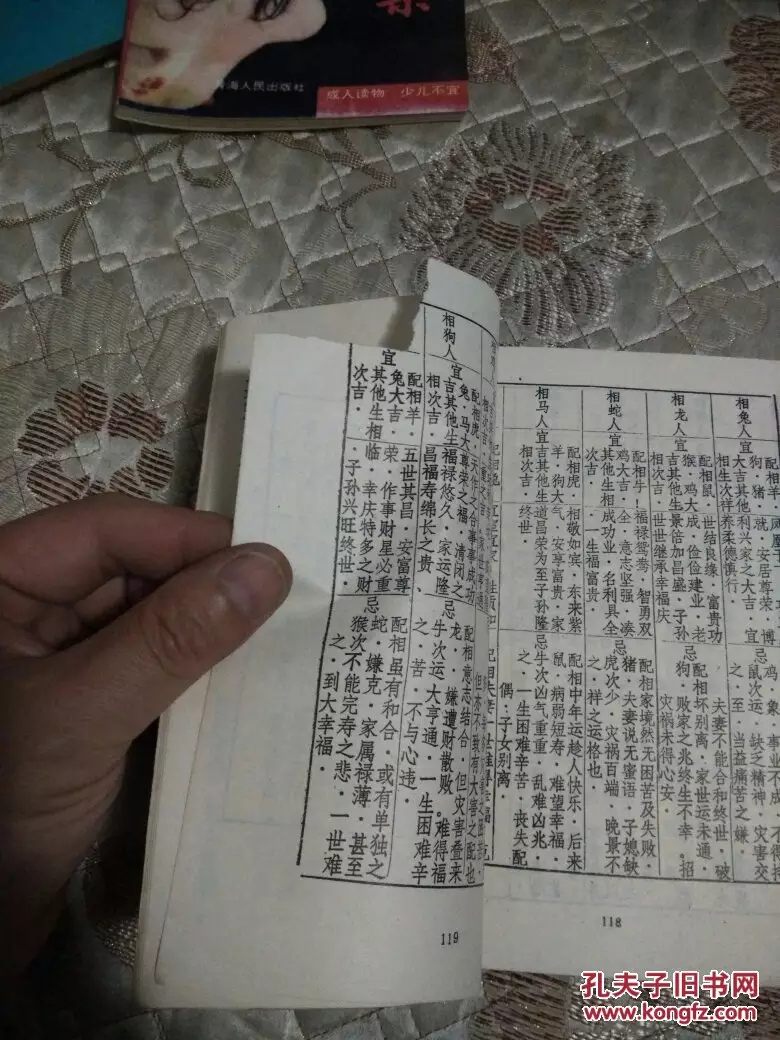 海人民出版社
成人读物 少儿不宜
相兔人
宜
忌
相龙人
宜
配相鼠．世结良缘．富贵功
猴．鸡大成．俭俭建业．老
吉其他生景倍加昌盛．子孙
相次吉．世世继承幸福庆
忌
配相坏别离．家世运未通．
狗．败家之兆终生不幸．招
灾祸未得心安．
相蛇人
宜
配相牛！福禄鸳鸯．智勇双
鸡大吉！全．意志坚强．凑
其他生相成功业．名利具全
次吉．一生福富贵．
忌
配相家境然无困苦及失败．
猪．夫妻说无蜜语．子媳缺
虎次少．灾祸百端．晚景不
之．祥之运格也．
相马人
宜
配相虎．相敬如宾．东来紫
羊．狗大气．安享富贵．家
吉其他生道昌荣为至子孙隆
终世．
忌
配相中年运趁人快乐．后来
鼠．病弱短寿．难望幸福．
牛次凶气重重．乱难凶兆．
之．一生困难辛苦．丧失配
偶．子女别离
118
相狗人
宜
配相虎．天作之合事事成功
兔．马大尊荣之福．清闭之
吉其他生福禄悠久．家运隆
相次吉．昌福寿绵长之贵．
忌
配相意志结合．但灾害叠来
龙．嫌遭财散败．难得福
牛次运．大亨通．一生困难辛
之．苦．不与心违．
宜
配相羊．五世其昌．安富尊
兔大吉．荣．作事财星必重
其他生相临．幸庆特多之财
次吉．子孙兴旺终世．
忌
配相虽有和合．或有单独之
蛇．嫌克．家属禄薄．甚至
猴次不能完寿之悲．一世难
之．到大幸福．
119
孔夫子旧书网
www.kongfz.com